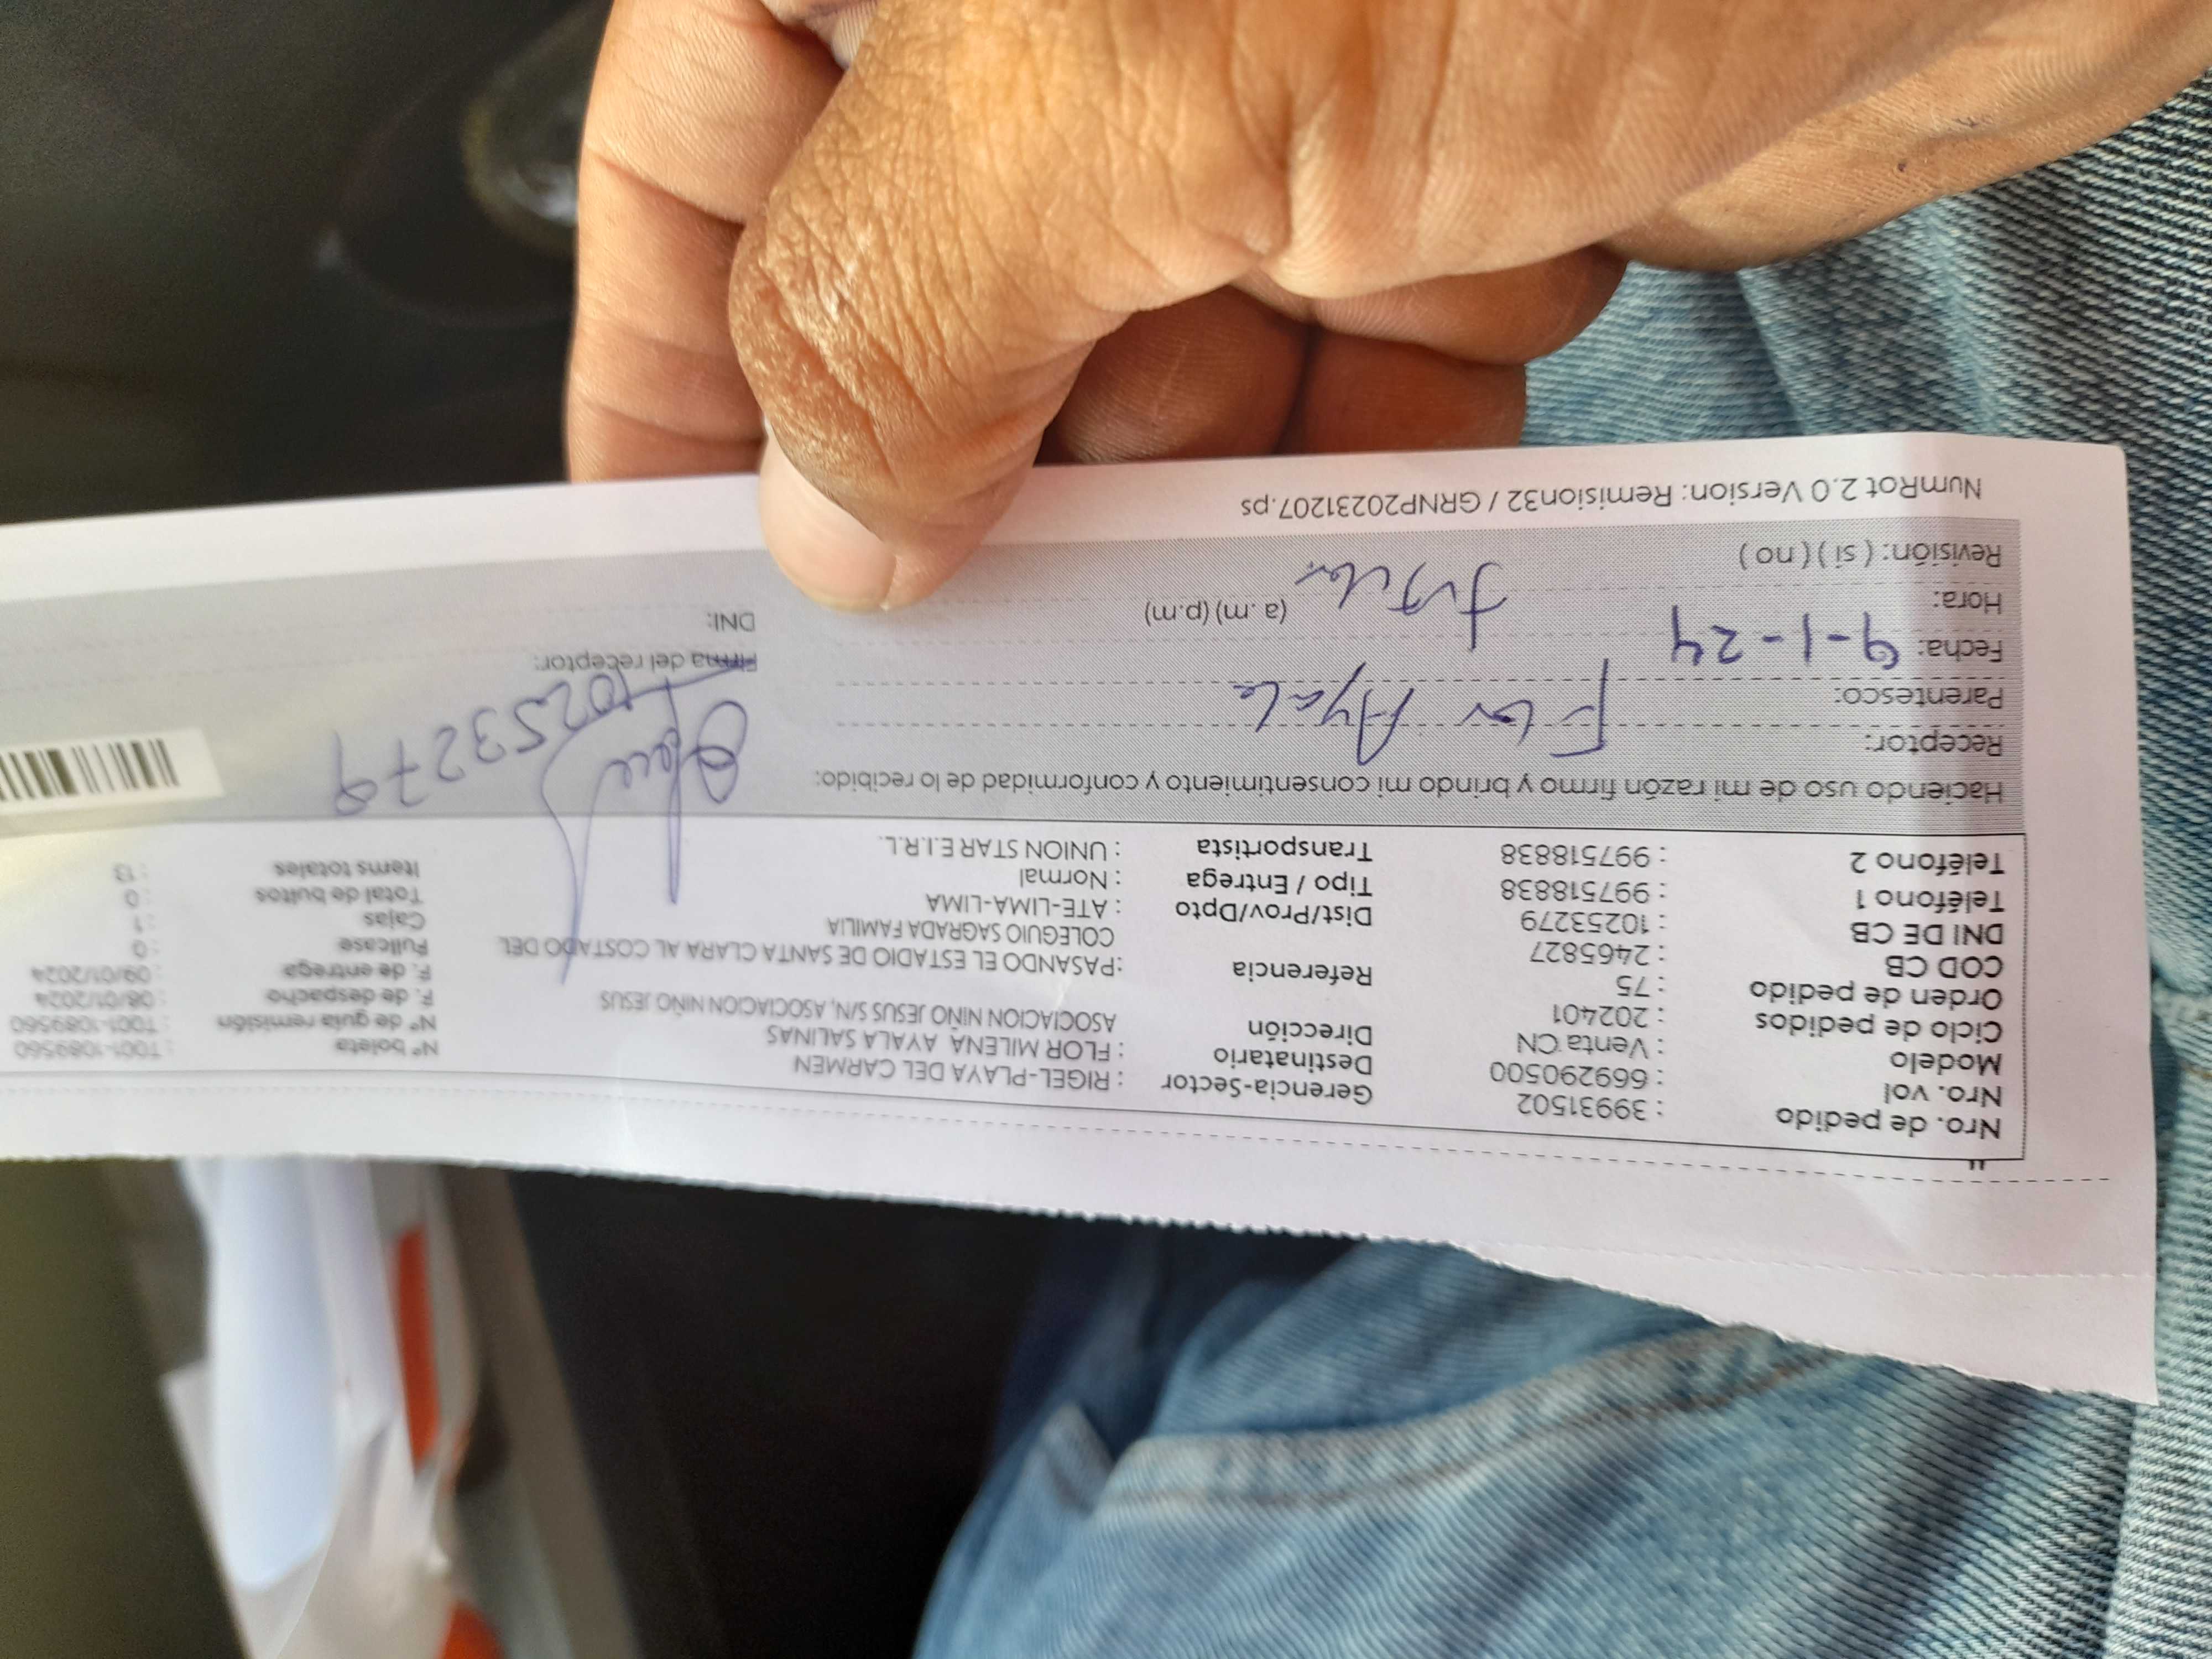 Nro. de pedido : 39931502 Gerencia-Sector : RIGEL-PLAYA DEL CARMEN Nº boleta : T001-1089560
Nro. vol : 669290500 Destinatario : FLOR MILENA AYALA SALINAS Nº de guía remisión : T001-1089560
Modelo : Venta CN Dirección ASOCIACION NIÑO JESUS S/N, ASOCIACION NIÑO JESUS F. de despacho : 08/01/2024
Ciclo de pedidos : 202401 F. de entrega : 09/01/2024
Orden de pedido : 75 Referencia :PASANDO EL ESTADIO DE SANTA CLARA AL COSTADO DEL Fullcase : 0
COD CB : 2465827 COLEGUIO SAGRADA FAMILIA Cajas : 1
DNI DE CB : 10253279 Dist/Prov/Dpto : ATE-LIMA-LIMA Total de bultos : 0
Teléfono 1 : 997518838 Tipo / Entrega : Normal Items totales : 13
Teléfono 2 : 997518838 Transportista : UNION STAR E.I.R.L.
Haciendo uso de mi razón firmo y brindo mi consentimiento y conformidad de lo recibido:
Receptor: Flor Ayala
Parentesco:
Fecha: 9-1-24 Firma del receptor:
10253279
Hora: (a.m) (p.m) DNI:
Revisión: ( si ) ( no )
NumRot 2.0 Version: Remision32 / GRNP20231207.ps